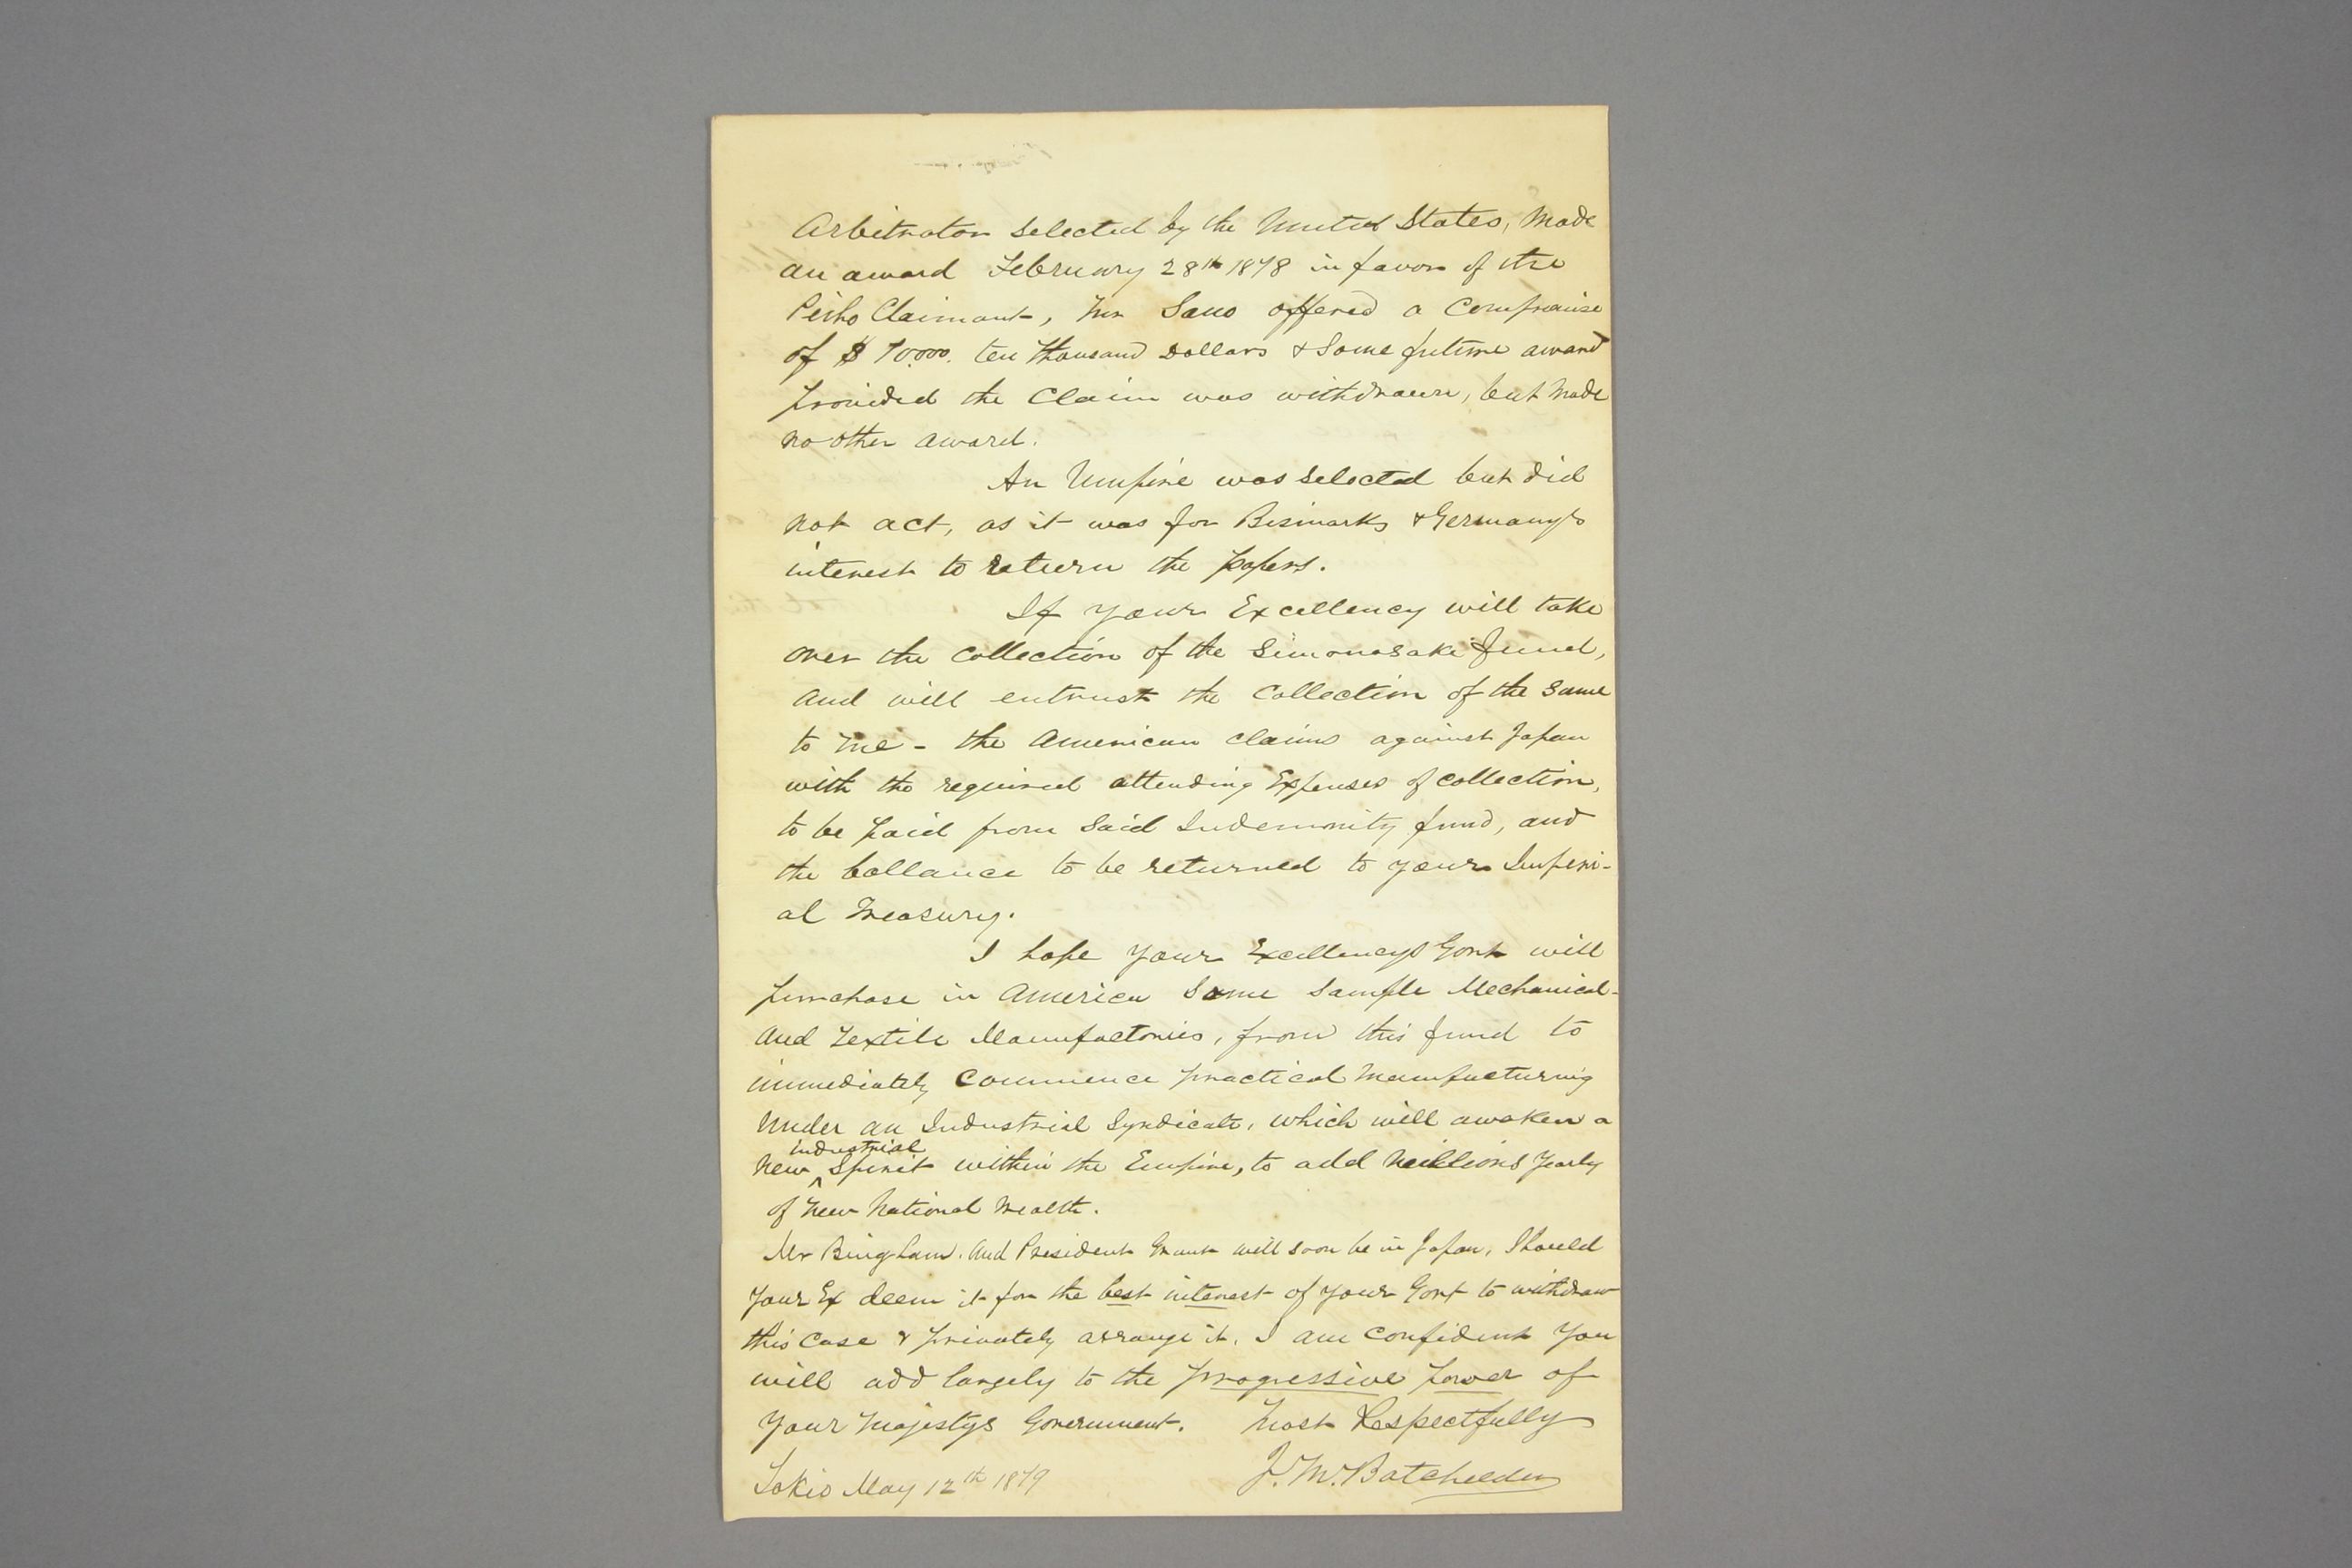 Arbitrator selected by the United States, made
an award February 28th 1878 in favor of the
Peiho Claimant, Mr Sano offered a Compromise
of $10,000. ten thousand Dollars & Some future award
provided the Claim was withdrawn, but made
no other award.
An Umpire was selected but did
not act, as it was for Bismarks & Germanys
interest to return the papers.
If your Excellency will take
over the collection of the Simonasaki Fund,
and will entrust the Collection of the same
to me - the American claims against Japan
with the required attending Expenses of collection,
to be paid from said Indemnity fund, and
the ballance to be returned to your Imperi-
al Treasury.
I hope your Excellencys Govt will
purchase in America some sample Mechanical-
and Textile Manufactories, from this fund to
immediately commence practical manufacturing
under an Industrial Syndicate, which will awaken a
industrial
new ^ Spirit within the Empire, to add millions yearly
of new National wealth.
Mr Bingham. and President Grant will soon be in Japan, Should
your Ex deem it for the best interest of your Govt to withdraw
this case & privately arrange it, I am confident you
will add largely to the progressive power of
your Majestys Government. Most Respectfully
Tokio May 12th 1879 J. M. Batchelder